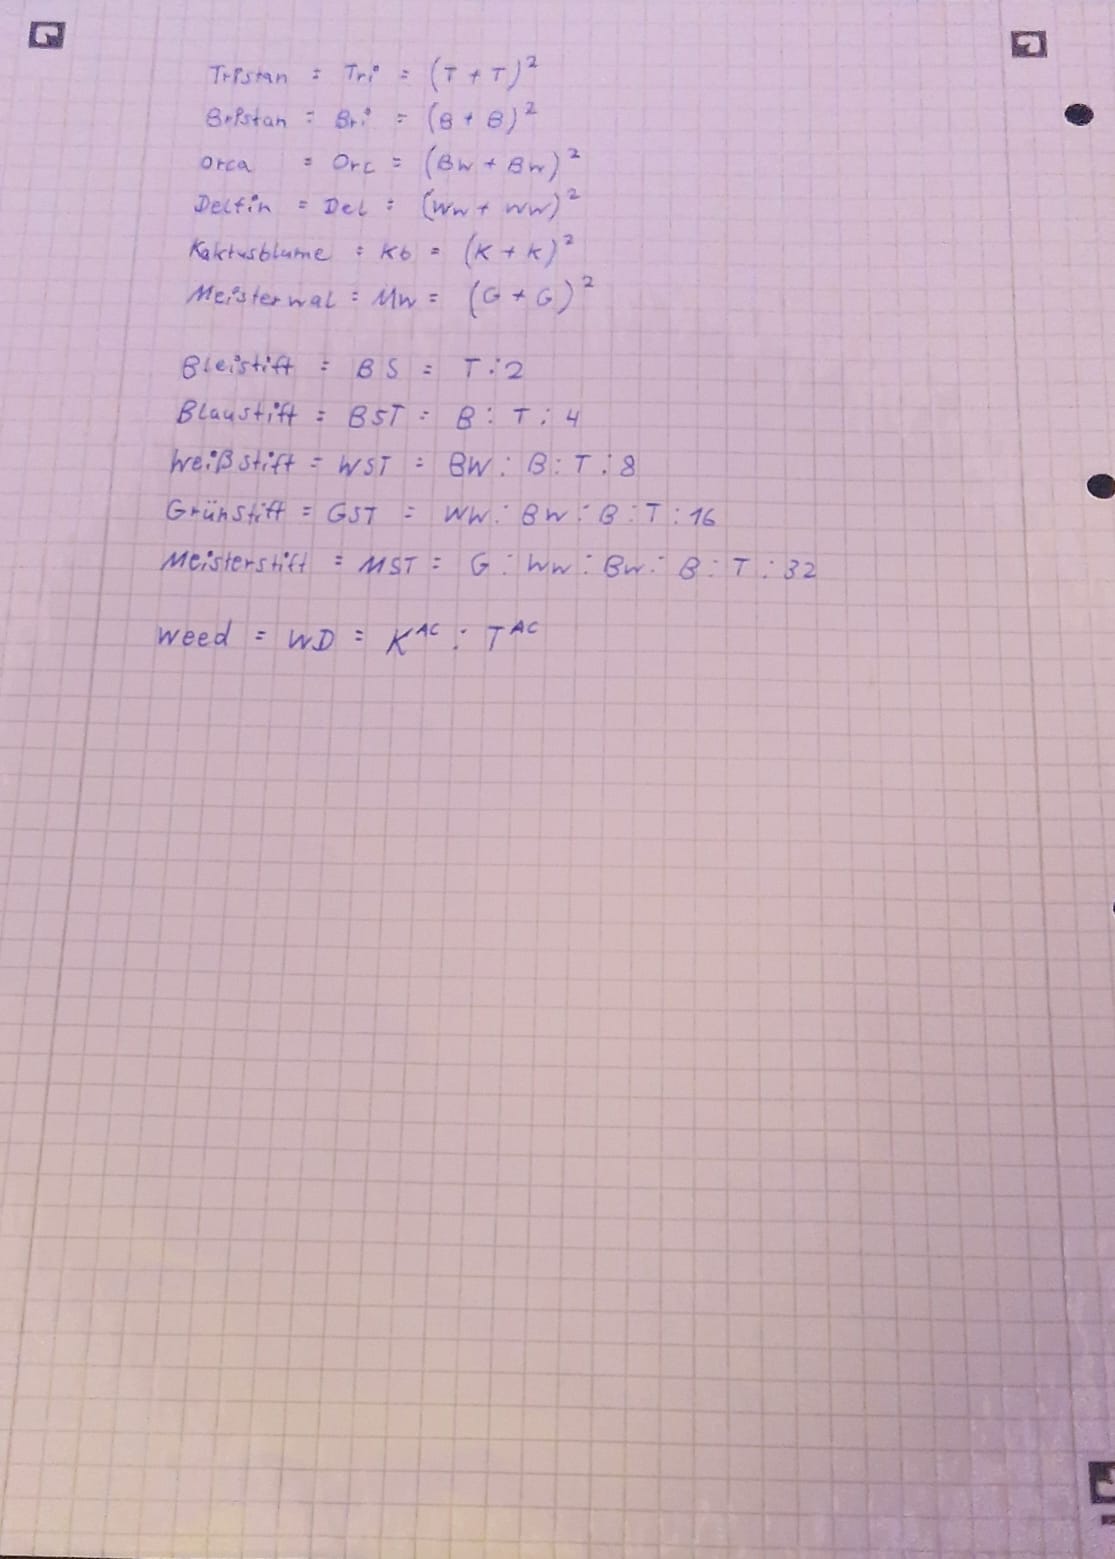 Tristan = Tri = (T + T)²
Bristan = Bri = (B + B)²
Orca = Orc = (BW + BW)²
Delfin = Del = (WW + WW)²
Kaktusblume = Kb = (K + K)²
Meisterwal = MW = (G + G)²
Bleistift = BS = T : 2
Blaustift = BST = B : T : 4
Weißstift = WST = BW : B : T : 8
Grünstift = GST = WW : BW : B : T : 16
Meisterstift = MST = G : WW : BW : B : T : 32
Weed = WD = K^AC : T^AC